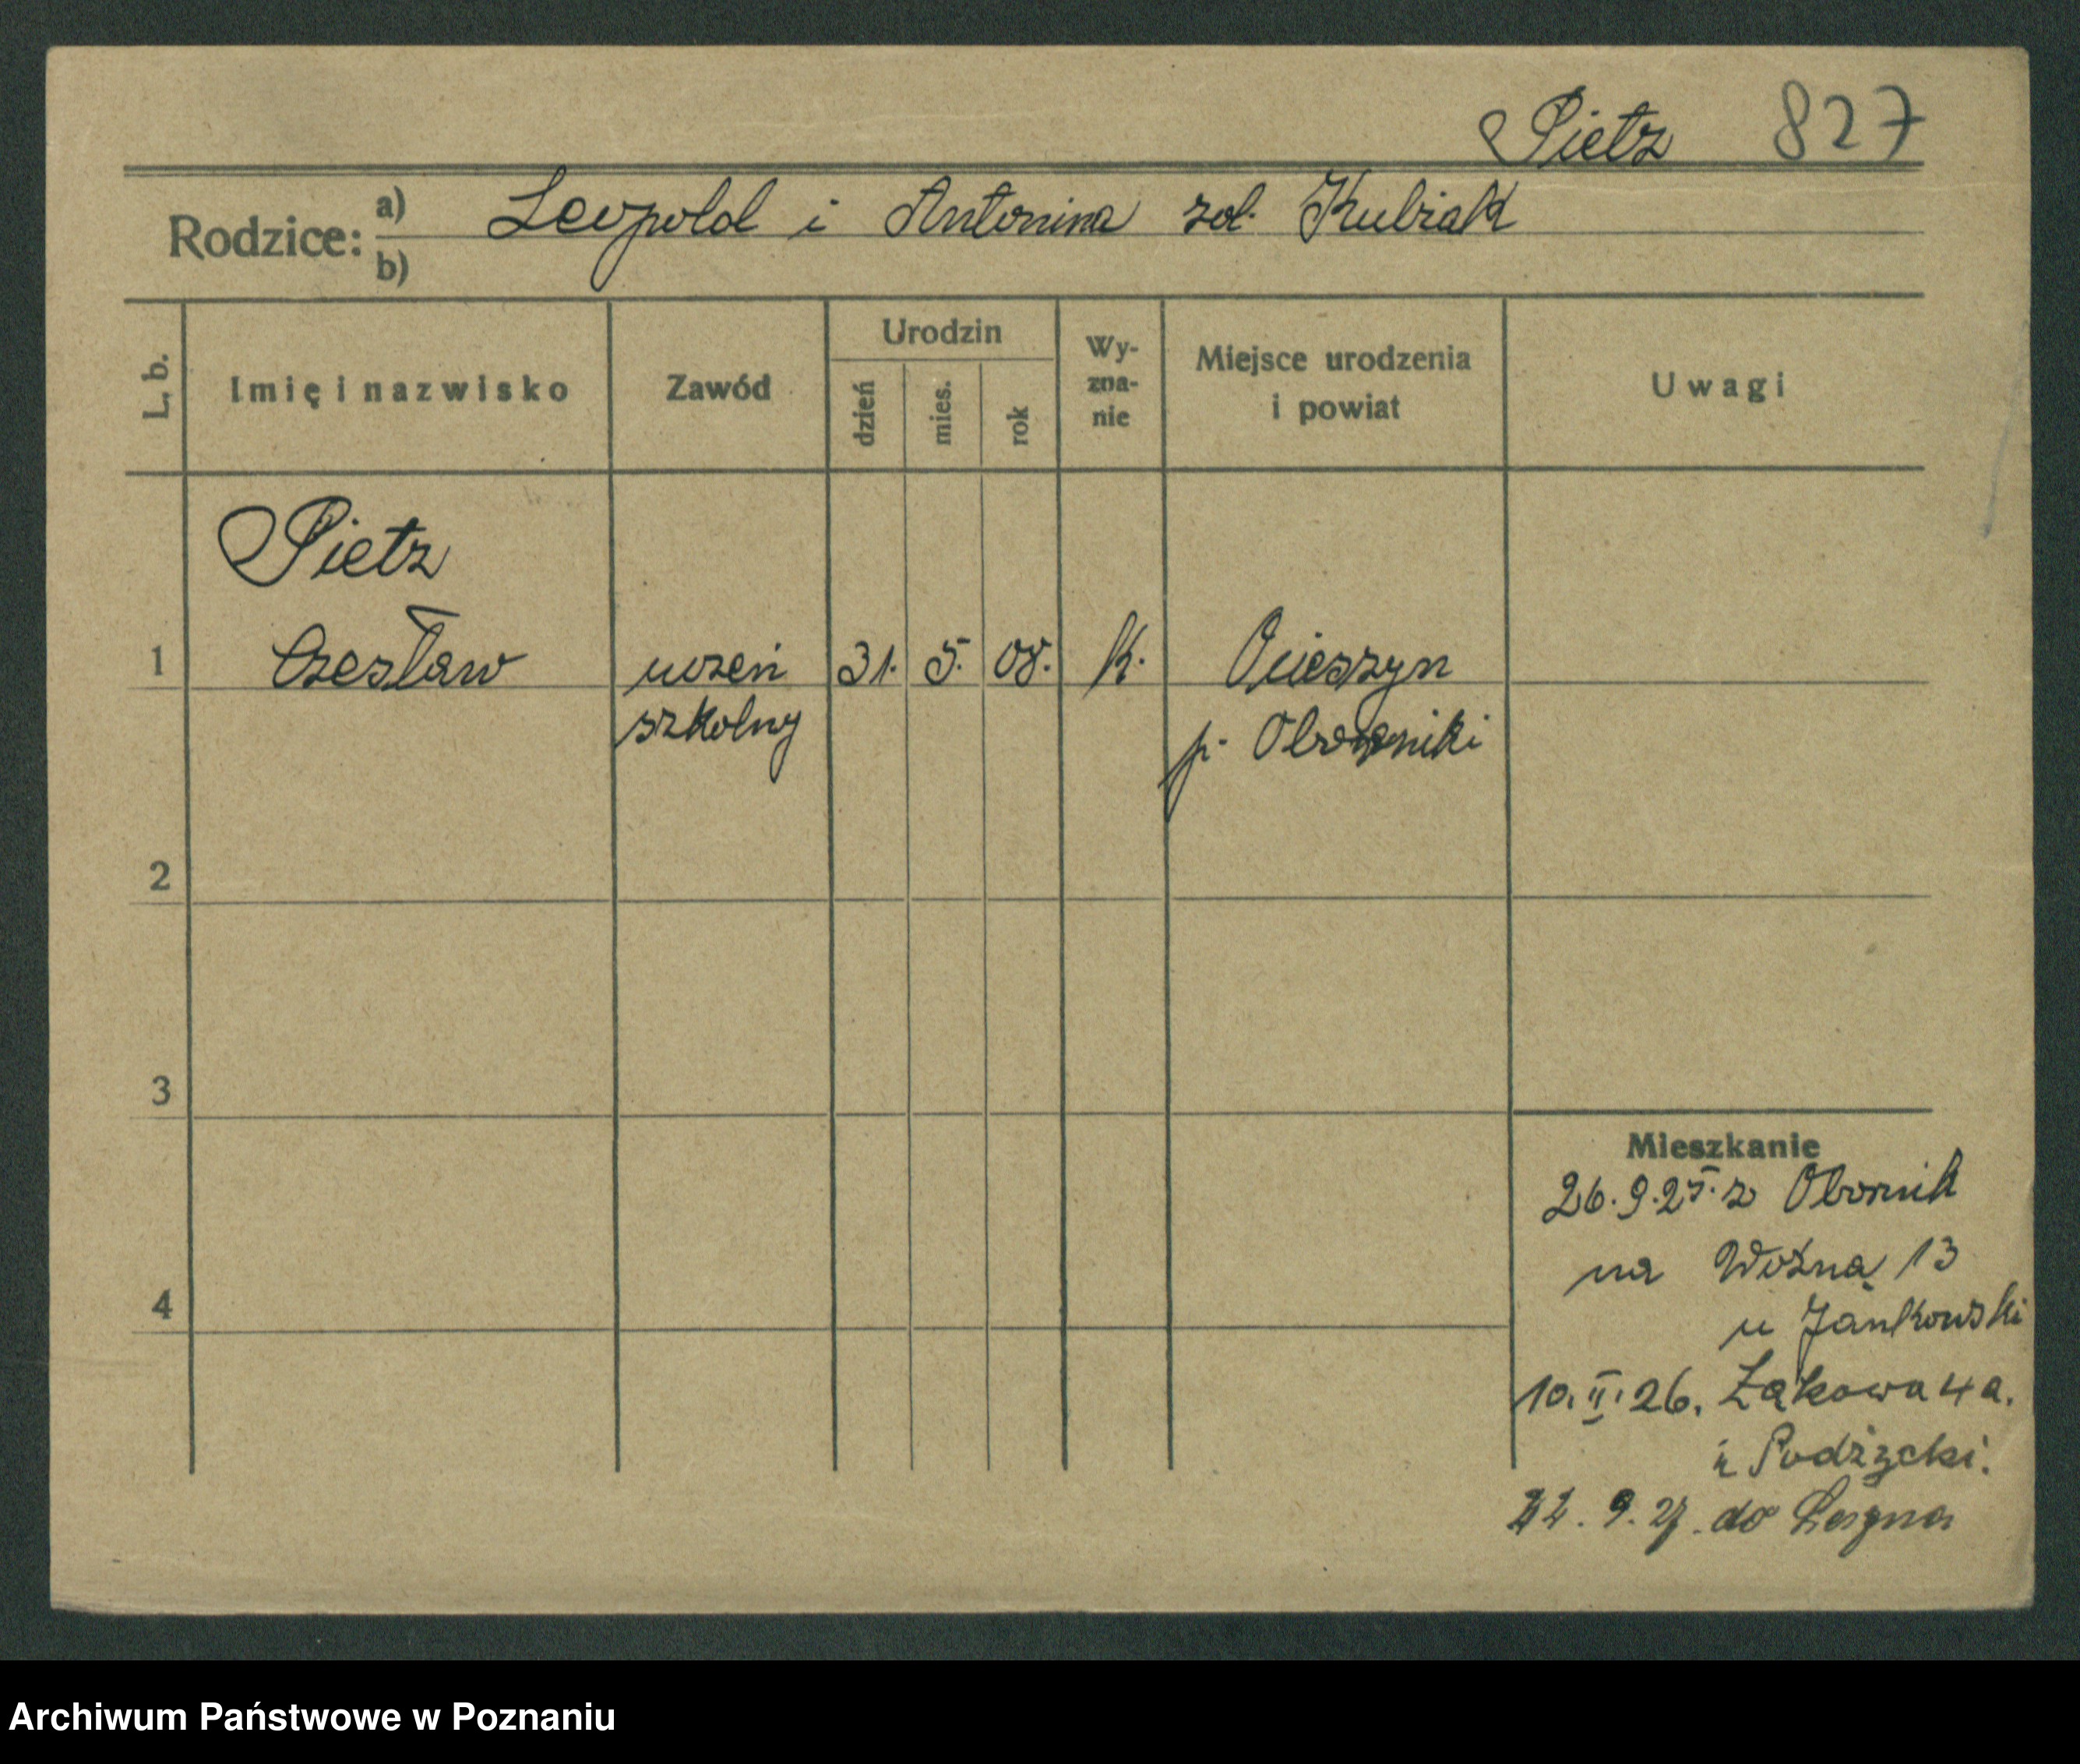 Pietz 827
Rodzice: a) Leopold i Antonina zd. Kubiak
b)
L. b. Imię i nazwisko Zawód Urodzin dzień mies. rok Wy-zna-nie Miejsce urodzenia i powiat Uwagi
Pietz
1 Czesław uczeń 31. 5. 08. k. Ocieszyn
szkolny p. Oborniki
2
3
Mieszkanie
26.9.25. z Obornik
na Woźną 13
4
u Jankowski
10.II.26. Łąkowa 4a.
u Podżycki.
9.27. do
Archiwum Państwowe w Poznaniu